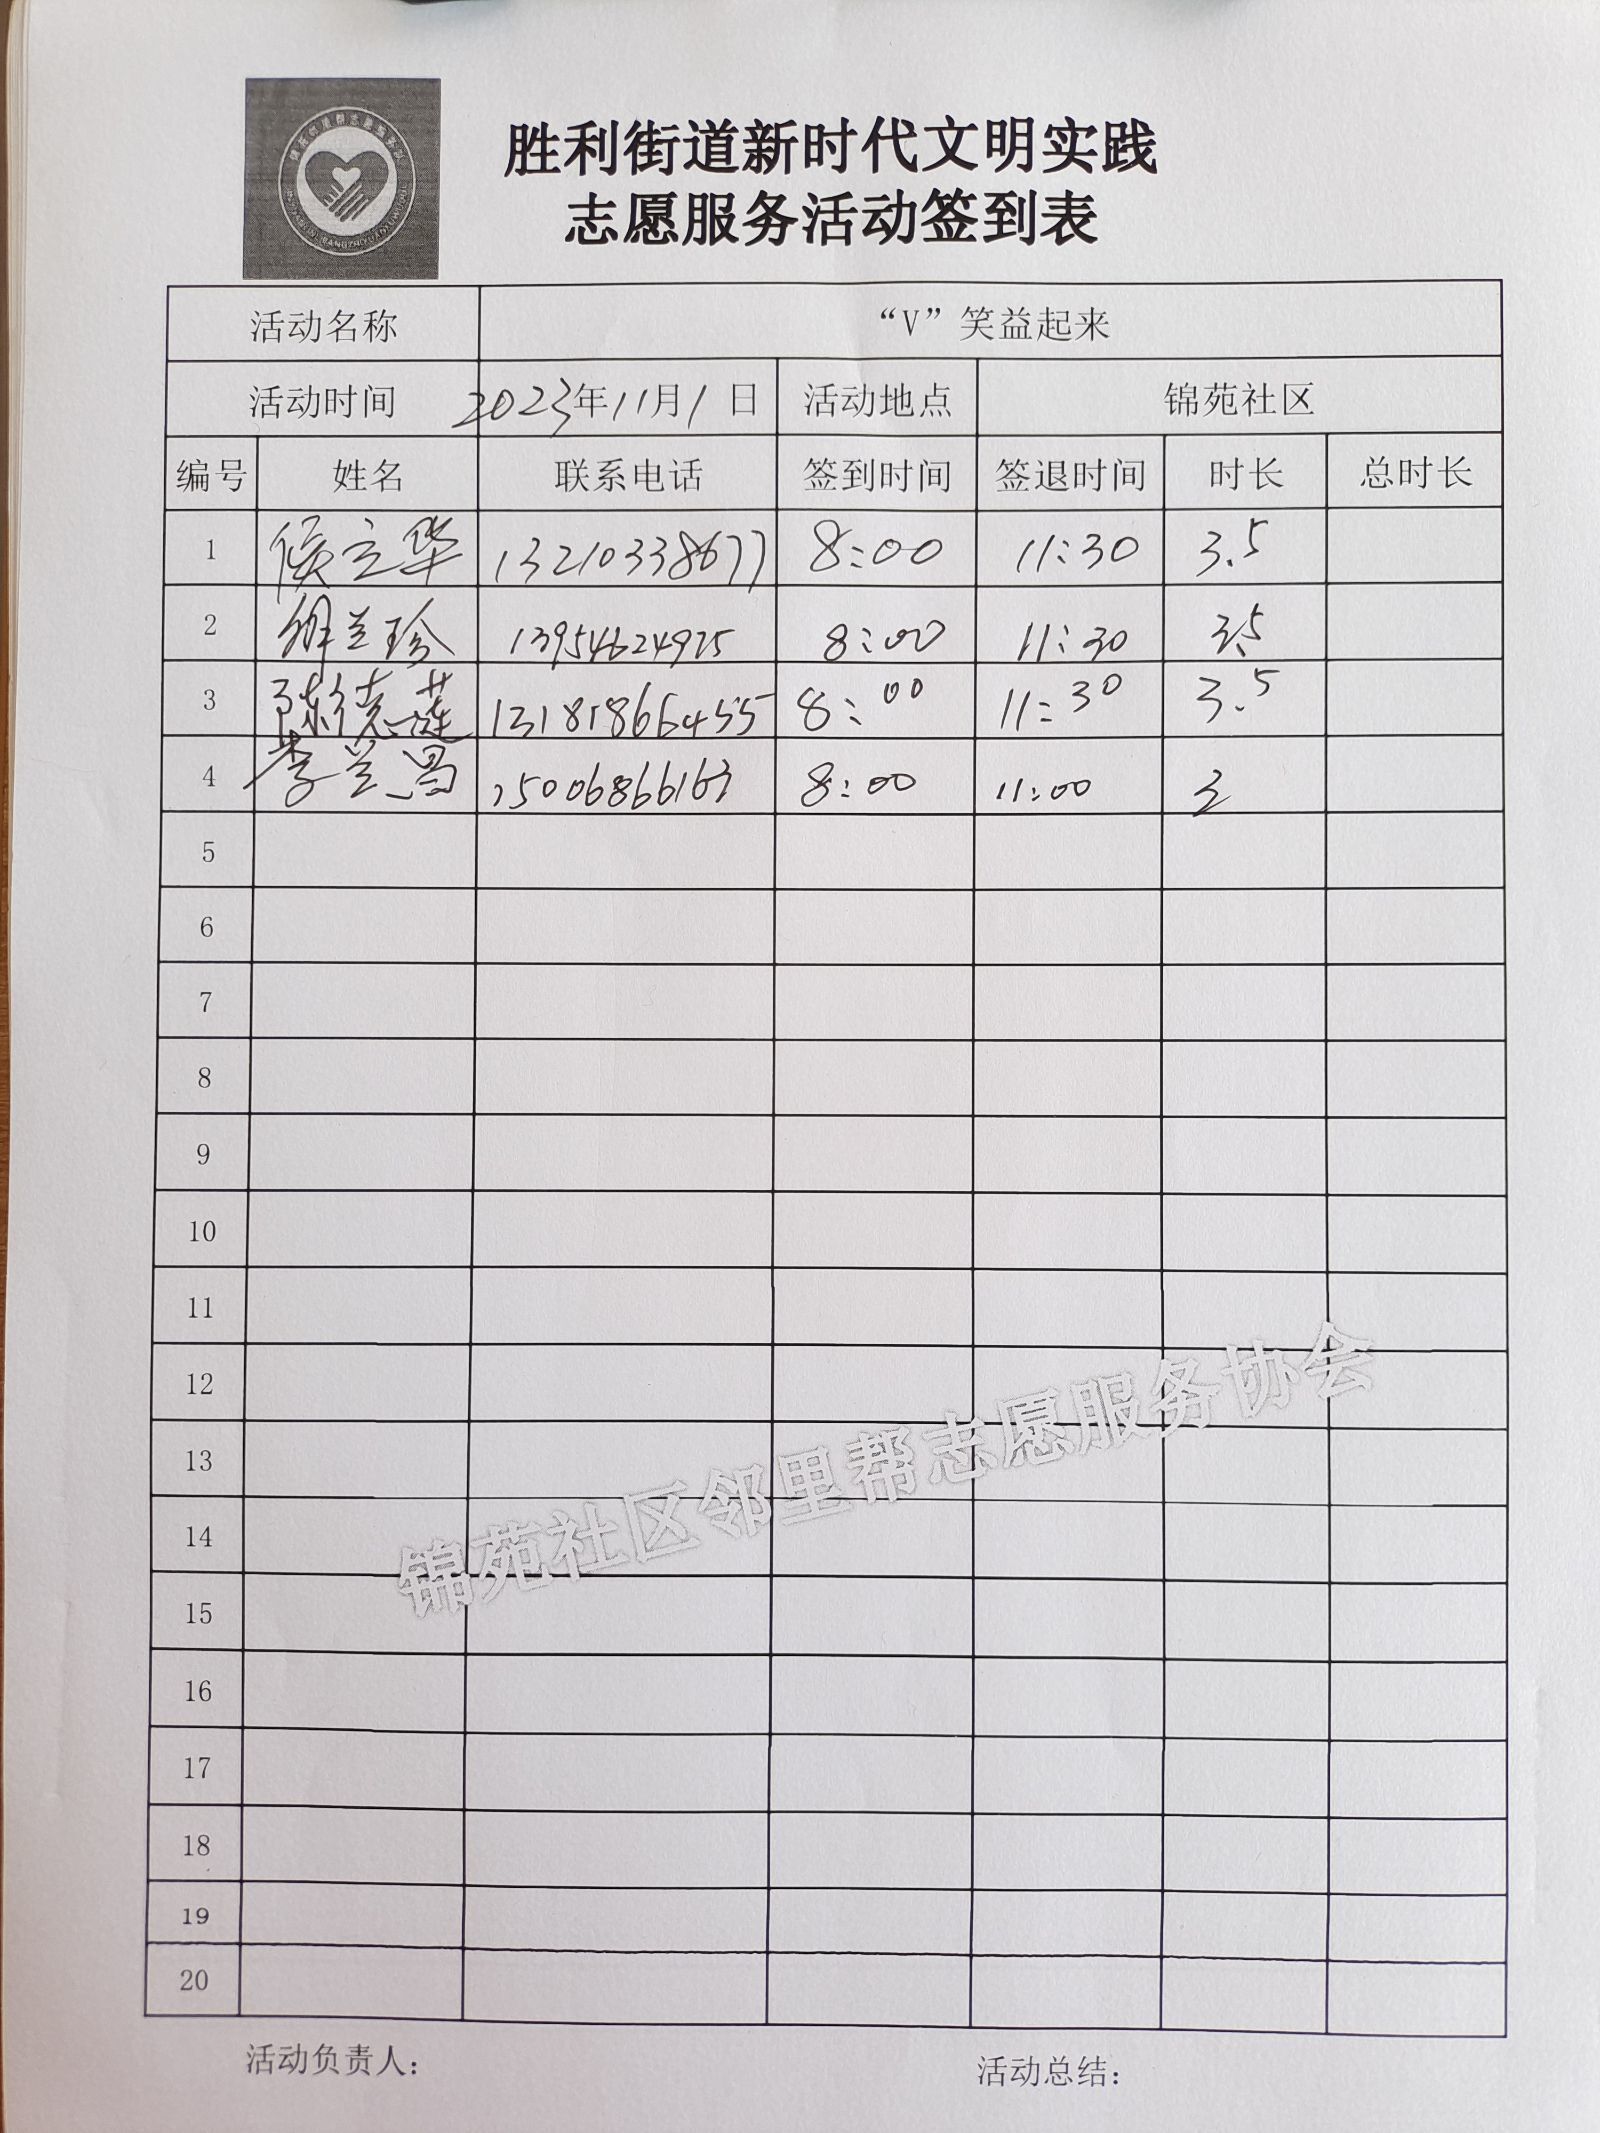 胜利街道新时代文明实践
志愿服务活动签到表
活动名称 “V”笑益起来
活动时间 2023年11月1日 活动地点 锦苑社区
编号 姓名 联系电话 签到时间 签退时间 时长 总时长
1 侯立华 13210338677 8:00 11:30 3.5
2 徐兰珍 13954624925 8:00 11:30 3.5
3 陈德莲 13181866455 8:00 11:30 3.5
4 李兰昌 15006866163 8:00 11:00 3
5
6
7
8
9
10
11
12
13
14
15
16
17
18
19
20
锦苑社区邻里帮志愿服务协会
活动负责人: 活动总结: